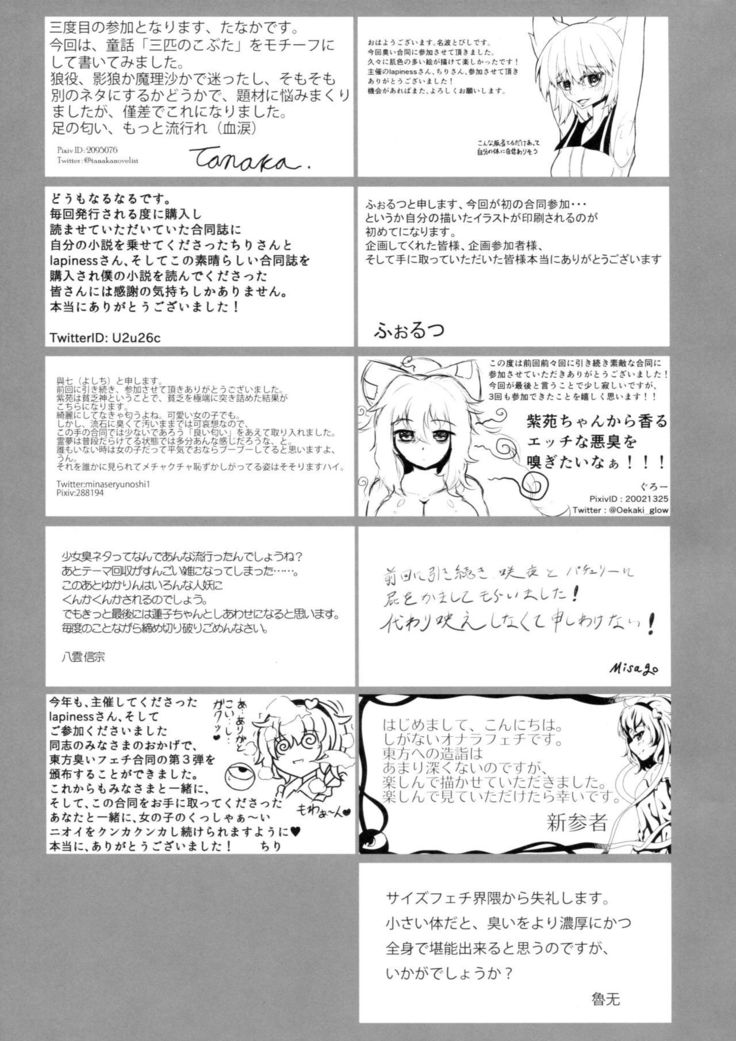 三度目の参加となります、たなかです。
今回は、童話「三匹のこぶた」をモチーフに
して書いてみました。
狼役、影狼か魔理沙かで迷ったし、そもそも
別のネタにするかどうかで、題材に悩みまくり
ましたが、僅差でこれになりました。
足の匂い、もっと流行れ（血涙）
Pixiv ID: 2095076
Twitter: @tanakanovelist
Tanaka.
おはようございます。名波とびしです。
今回臭い合同に参加させて頂きました。
久々に肌色の多い絵が描けて楽しかったです！
主催のlapinessさん、ちりさん、参加させて頂き
ありがとうございました！
機会があればまた、よろしくお願いします。
自分の体に自信ありそう
どうもなるなるです。
毎回発行される度に購入し
読ませていただいていた合同誌に
自分の小説を乗せてくださったちりさんと
lapinessさん、そしてこの素晴らしい合同誌を
購入され僕の小説を読んでくださった
皆さんには感謝の気持ちしかありません。
本当にありがとうございました！
TwitterID: U2u26c
ふぉるつと申します、今回が初の合同参加・・・
というか自分の描いたイラストが印刷されるのが
初めてになります。
企画してくれた皆様、企画参加者様、
そして手に取っていただいた皆様本当にありがとうございます
ふぉるつ
與七（よしち）と申します。
前回に引き続き、参加させて頂きありがとうございました。
紫苑は貧乏神ということで、貧乏を極端に突き詰めた結果が
こちらになります。
綺麗にしてなきゃ匂うよね。可愛い女の子でも。
しかし、流石に臭くて汚いままでは可哀想なので、
この手の合同では少ないであろう「良い匂い」をあえて取り入れました。
霊夢は普段だらけてる状態では多分あんな感じだろうな、と。
誰もいない時は女の子だって平気でおならブーブーしてると思いますよ、
うん。
それを誰かに見られてメチャクチャ恥ずかしがってる姿はそそりますハイ。
Twitter:minaseryunoshi1
Pixiv:288194
この度は前回前々回に引き続き素敵な合同に
参加させていただきありがとうございました！
今回が最後と言うことで少し寂しいですが、
3回も参加できたことを嬉しく思います！！
紫苑ちゃんから香る
エッチな悪臭を
嗅ぎたいなぁ！！！
ぐろー
PixivID : 20021325
Twitter : @Oekaki_glow
少女臭ネタってなんであんな流行ったんでしょうね？
あとテーマ回収がすんごい雑になってしまった……。
このあとゆかりんはいろんな人妖に
くんかくんかされるのでしょう。
でもきっと最後には蓮子ちゃんとしあわせになると思います。
毎度のことながら締め切り破りごめんなさい。
八雲 信宗
前回に引き続き 咲夜と パチュリーに
屁をかましてもらいました！
代わり映えしなくて申しわけない！
Misago
今年も、主催してくださった
lapinessさん、そして
ご参加くださいました
同志のみなさまのおかげで、
東方臭いフェチ合同の第３弾を
頒布することができました。
これからもみなさまと一緒に、
そして、この合同をお手に取ってくださった
あなたと一緒に、女の子のくっしゃぁ～い
ニオイをクンカクンカし続けられますように♥
本当に、ありがとうございました！　ちり
あ…ありが…
こい…し…
ガクッ♥
もわぁ～ん♥
はじめまして、こんにちは。
しがないオナラフェチです。
東方への造詣は
あまり深くないのですが、
楽しんで描かせていただきました。
楽しんで見ていただけたら幸いです。
新参者
サイズフェチ界隈から失礼します。
小さい体だと、臭いをより濃厚にかつ
全身で堪能出来ると思うのですが、
いかがでしょうか？
魯无